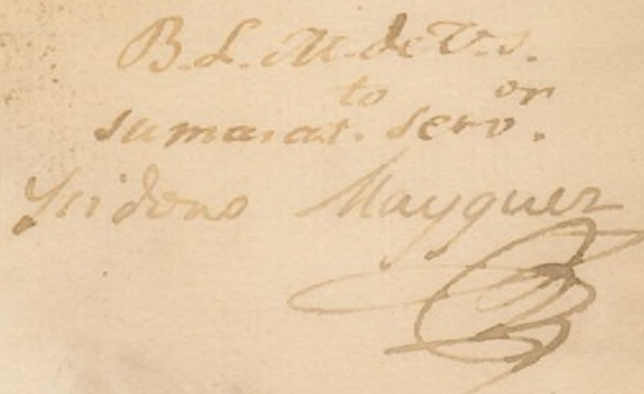 B. L. M. de V. s.
su mas at.to serv.or
Isidoro Mayquez